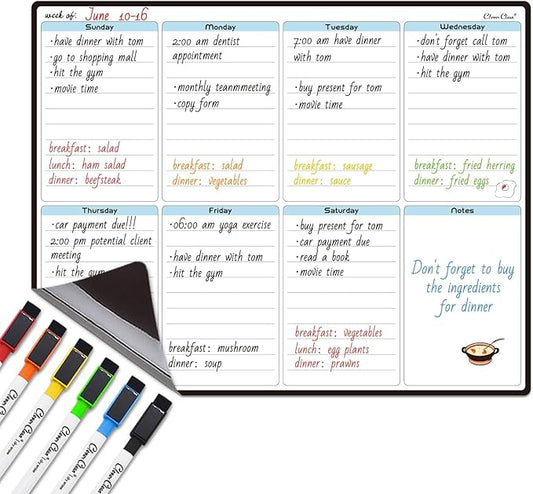 week of: June 10-16
Clever Clean®
Sunday
·have dinner with tom
·go to shopping mall
·hit the gym
·movie time
breakfast: salad
lunch: ham salad
dinner: beefsteak
Monday
2:00 am dentist
appointment
·monthly teanmmeeting
·copy form
breakfast: salad
dinner: vegetables
Tuesday
7:00 am have dinner
with tom
·buy present for tom
·movie time
breakfast: sausage
dinner: sauce
Wednesday
·don't forget call tom
·have dinner with tom
·hit the gym
breakfast: fried herring
dinner: fried eggs
Thursday
·car payment due!!!
2:00 pm potential client
meeting
·hit the gym
Friday
·06:00 am yoga exercise
·have dinner with tom
·hit the gym
breakfast: mushroom
dinner: soup
Saturday
·buy present for tom
·car payment due
·read a book
·movie time
breakfast: vegetables
lunch: egg plants
dinner: prawns
Notes
Don't forget to buy
the ingredients
for dinner